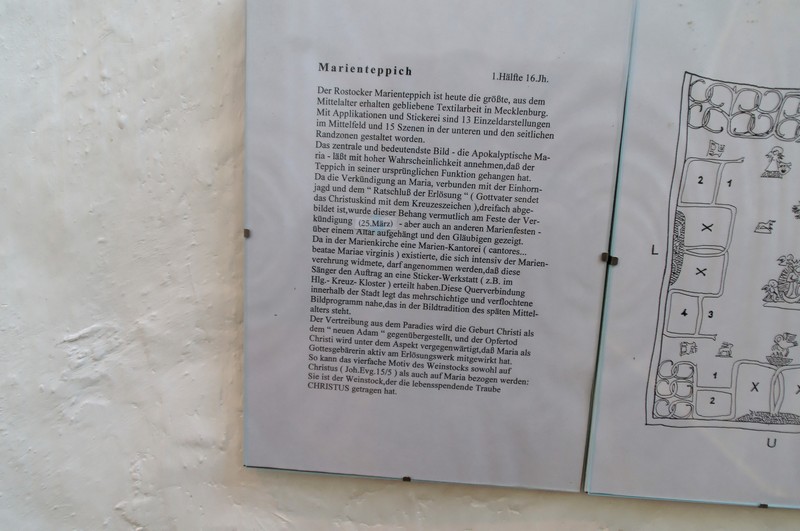 Marienteppich 1.Hälfte 16.Jh.
Der Rostocker Marienteppich ist heute die größte, aus dem
Mittelalter erhalten gebliebene Textilarbeit in Mecklenburg.
Mit Applikationen und Stickerei sind 13 Einzeldarstellungen
im Mittelfeld und 15 Szenen in der unteren und den seitlichen
Randzonen gestaltet worden.
Das zentrale und bedeutendste Bild - die Apokalyptische Ma-
ria - läßt mit hoher Wahrscheinlichkeit annehmen,daß der
Teppich in seiner ursprünglichen Funktion gehangen hat.
Da die Verkündigung an Maria, verbunden mit der Einhorn-
jagd und dem " Ratschluß der Erlösung " ( Gottvater sendet
das Christuskind mit dem Kreuzeszeichen ),dreifach abge-
bildet ist,wurde dieser Behang vermutlich am Feste der Ver-
kündigung (25.März) - aber auch an anderen Marienfesten -
über einem Altar aufgehängt und den Gläubigen gezeigt.
Da in der Marienkirche eine Marien-Kantorei ( cantores...
beatae Mariae virginis ) existierte, die sich intensiv der Marien-
verehrung widmete, darf angenommen werden,daß diese
Sänger den Auftrag an eine Sticker-Werkstatt ( z.B. im
Hlg.- Kreuz- Kloster ) erteilt haben.Diese Querverbindung
innerhalb der Stadt legt das mehrschichtige und verflochtene
Bildprogramm nahe,das in der Bildtradition des späten Mittel-
alters steht.
Der Vertreibung aus dem Paradies wird die Geburt Christi als
dem " neuen Adam " gegenübergestellt, und der Opfertod
Christi wird unter dem Aspekt vergegenwärtigt,daß Maria als
Gottesgebärerin aktiv am Erlösungswerk mitgewirkt hat.
So kann das vierfache Motiv des Weinstocks sowohl auf
Christus ( Joh.Evg.15/5 ) als auch auf Maria bezogen werden:
Sie ist der Weinstock,der die lebensspendende Traube
CHRISTUS getragen hat.
2 1
X
L
X
4 3
1
2
X
X
U